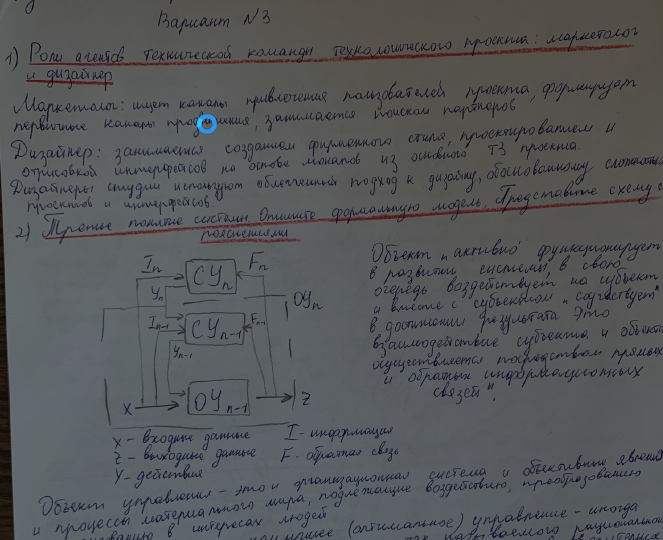 Вариант №3
1) Роли агентов технической команды технологического проекта: маркетолог
и дизайнер
Маркетолог: ищет каналы привлечения пользователей проекта, формирует
первичные каналы продвижения, занимается поиском партнёров
Дизайнер: занимается созданием фирменного стиля, проектированием и
отрисовкой интерфейсов на основе мокапов из основного ТЗ проекта.
Дизайнеры студии используют облегчённый подход к дизайну, обоснованному сложностью
проектов и интерфейсов.
2) Третье понятие системы. Опишите формальную модель. Представьте схему с
пояснениями
Iп
Fп
СУп
Yп
ОУп
Iп-1
СУп-1
Fп-1
Yп-1
X
ОУп-1
Z
Объект „активно" функционирует
в развитии системы, в свою
очередь воздействует на субъект
и вместе с субъектом „соучаствует"
в достижении результата Это
взаимодействие субъекта и объекта
осуществляется посредством прямых
и обратных информационных
связей".
X - входные данные I - информация
Z - выходные данные F - обратная связь
Y - действия
Объект управления - это и организационная система и объективные явления
и процессы материального мира, подлежащие воздействию, преобразованию
в интересах людей
(оптимальное) управление - иногда
называемого рационально